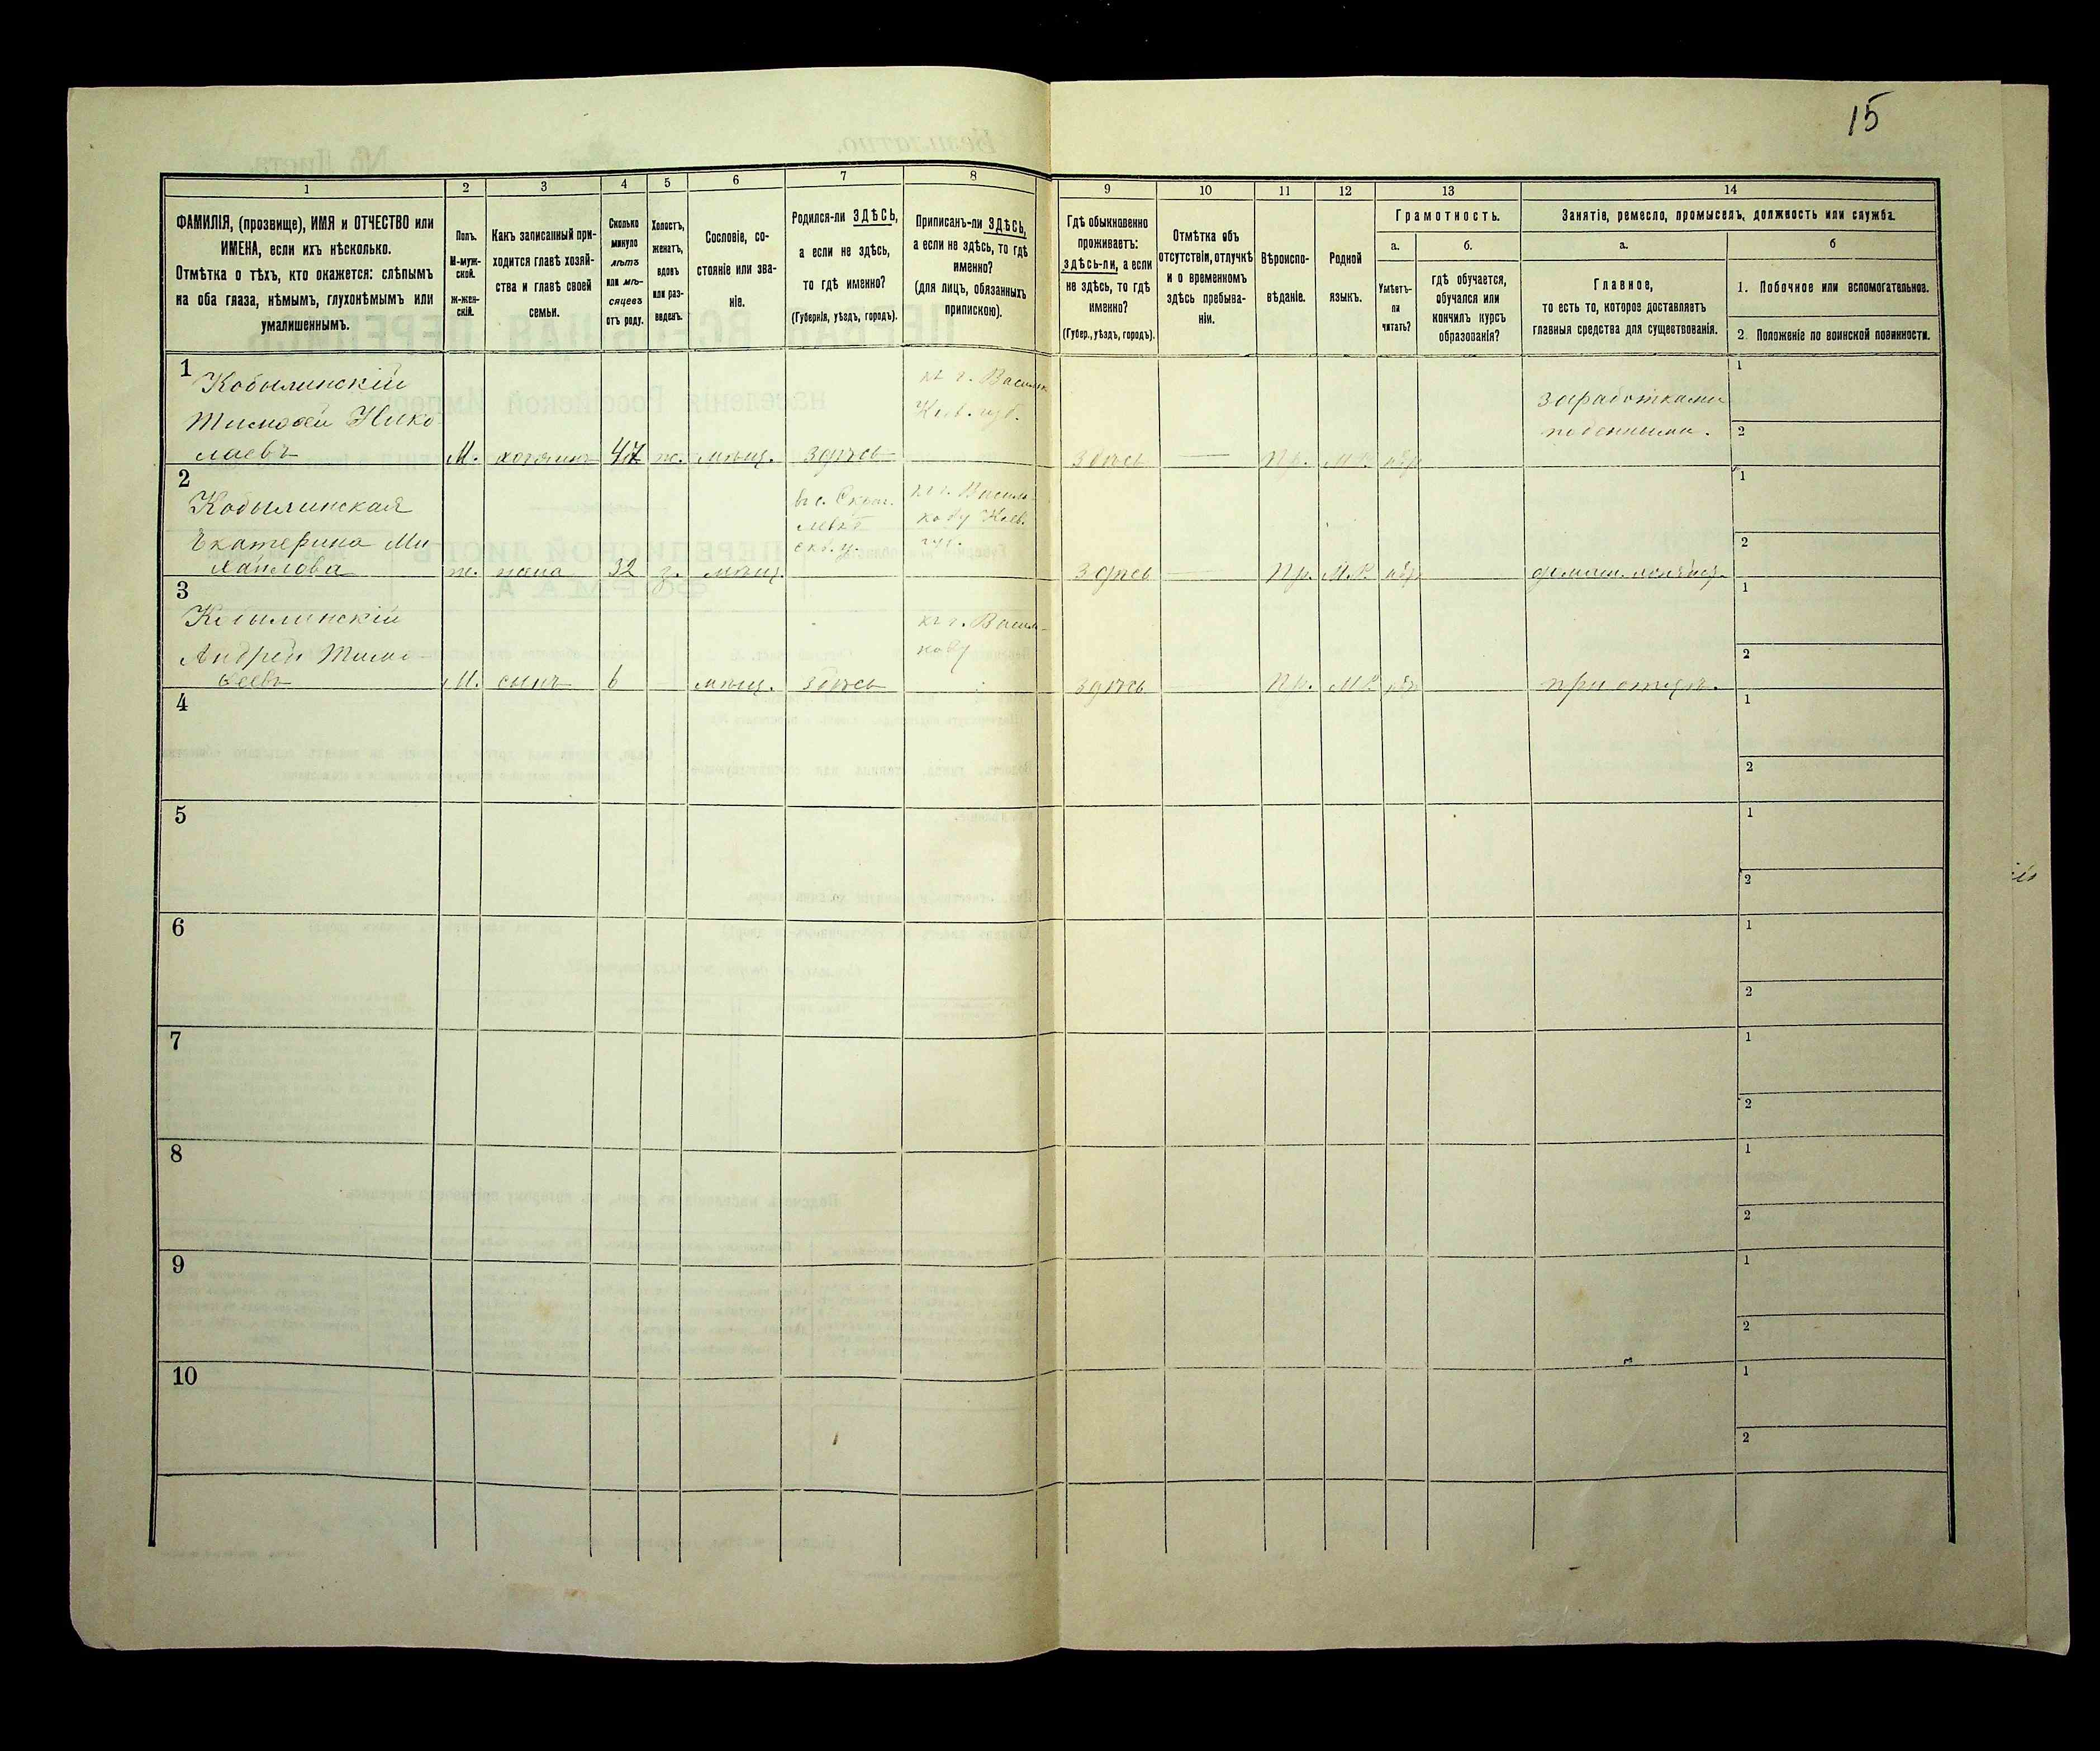 15
1
2
3
4
5
6
7
8
9
10
11
12
13
14
ФАМИЛІЯ, (прозвище), ИМЯ и ОТЧЕСТВО или
ИМЕНА, если ихъ нѣсколько.
Отмѣтка о тѣхъ, кто окажется: слѣпымъ
на оба глаза, нѣмымъ, глухонѣмымъ или
умалишеннымъ.
Полъ.
М-муж-
ской.
ж-жен-
скій.
Какъ записанный при-
ходится главѣ хозяй-
ства и главѣ своей
семьи.
Сколько
минуло
лѣтъ
или мѣ-
сяцевъ
отъ роду.
Холостъ,
женатъ,
вдовъ
или раз-
веденъ.
Сословіе, со-
стояніе или зва-
ніе.
Родился-ли ЗДѢСЬ,
а если не здѣсь,
то гдѣ именно?
(Губернія, уѣздъ, городъ).
Приписанъ-ли ЗДѢСЬ,
а если не здѣсь, то гдѣ
именно?
(для лицъ, обязанныхъ
припискою).
Гдѣ обыкновенно
проживаетъ:
здѣсь-ли, а если
не здѣсь, то гдѣ
именно?
(Губер., уѣздъ, городъ).
Отмѣтка объ
отсутствіи, отлучкѣ
и о временномъ
здѣсь пребыва-
ніи.
Вѣроиспо-
вѣданіе.
Родной
языкъ.
Грамотность.
а.
б.
Умѣетъ-
ли
читать?
гдѣ обучается,
обучался или
кончилъ курсъ
образованія?
Занятіе, ремесло, промыселъ, должность или служба.
а.
б
Главное,
то есть то, которое доставляетъ
главныя средства для существованія.
1. Побочное или вспомогательное.
2. Положеніе по воинской повинности.
1
Кобылинскій
Тимофѣй Нико-
лаевъ
М.
хозяинъ
47
ж.
мѣщ.
здѣсь
къ г. Василк
Кіев. губ.
здѣсь
Пр.
М.Р.
нѣт
заработками
поденными.
1
2
2
Кобылинская
Екатерина Ми
хаилова
ж.
жена
32
з.
мѣщ.
къ г. Василь-
кову Кіев.
губ.
здѣсь
Пр.
М.Р.
нѣт
1
2
3
Кобылинскій
Андрей Тимо-
феевъ
М.
сынъ
6
мѣщ.
здѣсь
къ г. Василь-
кову
здѣсь
Пр.
М.Р.
нѣт
при отцѣ.
1
2
4
1
2
5
1
2
6
1
2
7
1
2
8
1
2
9
1
2
10
1
2